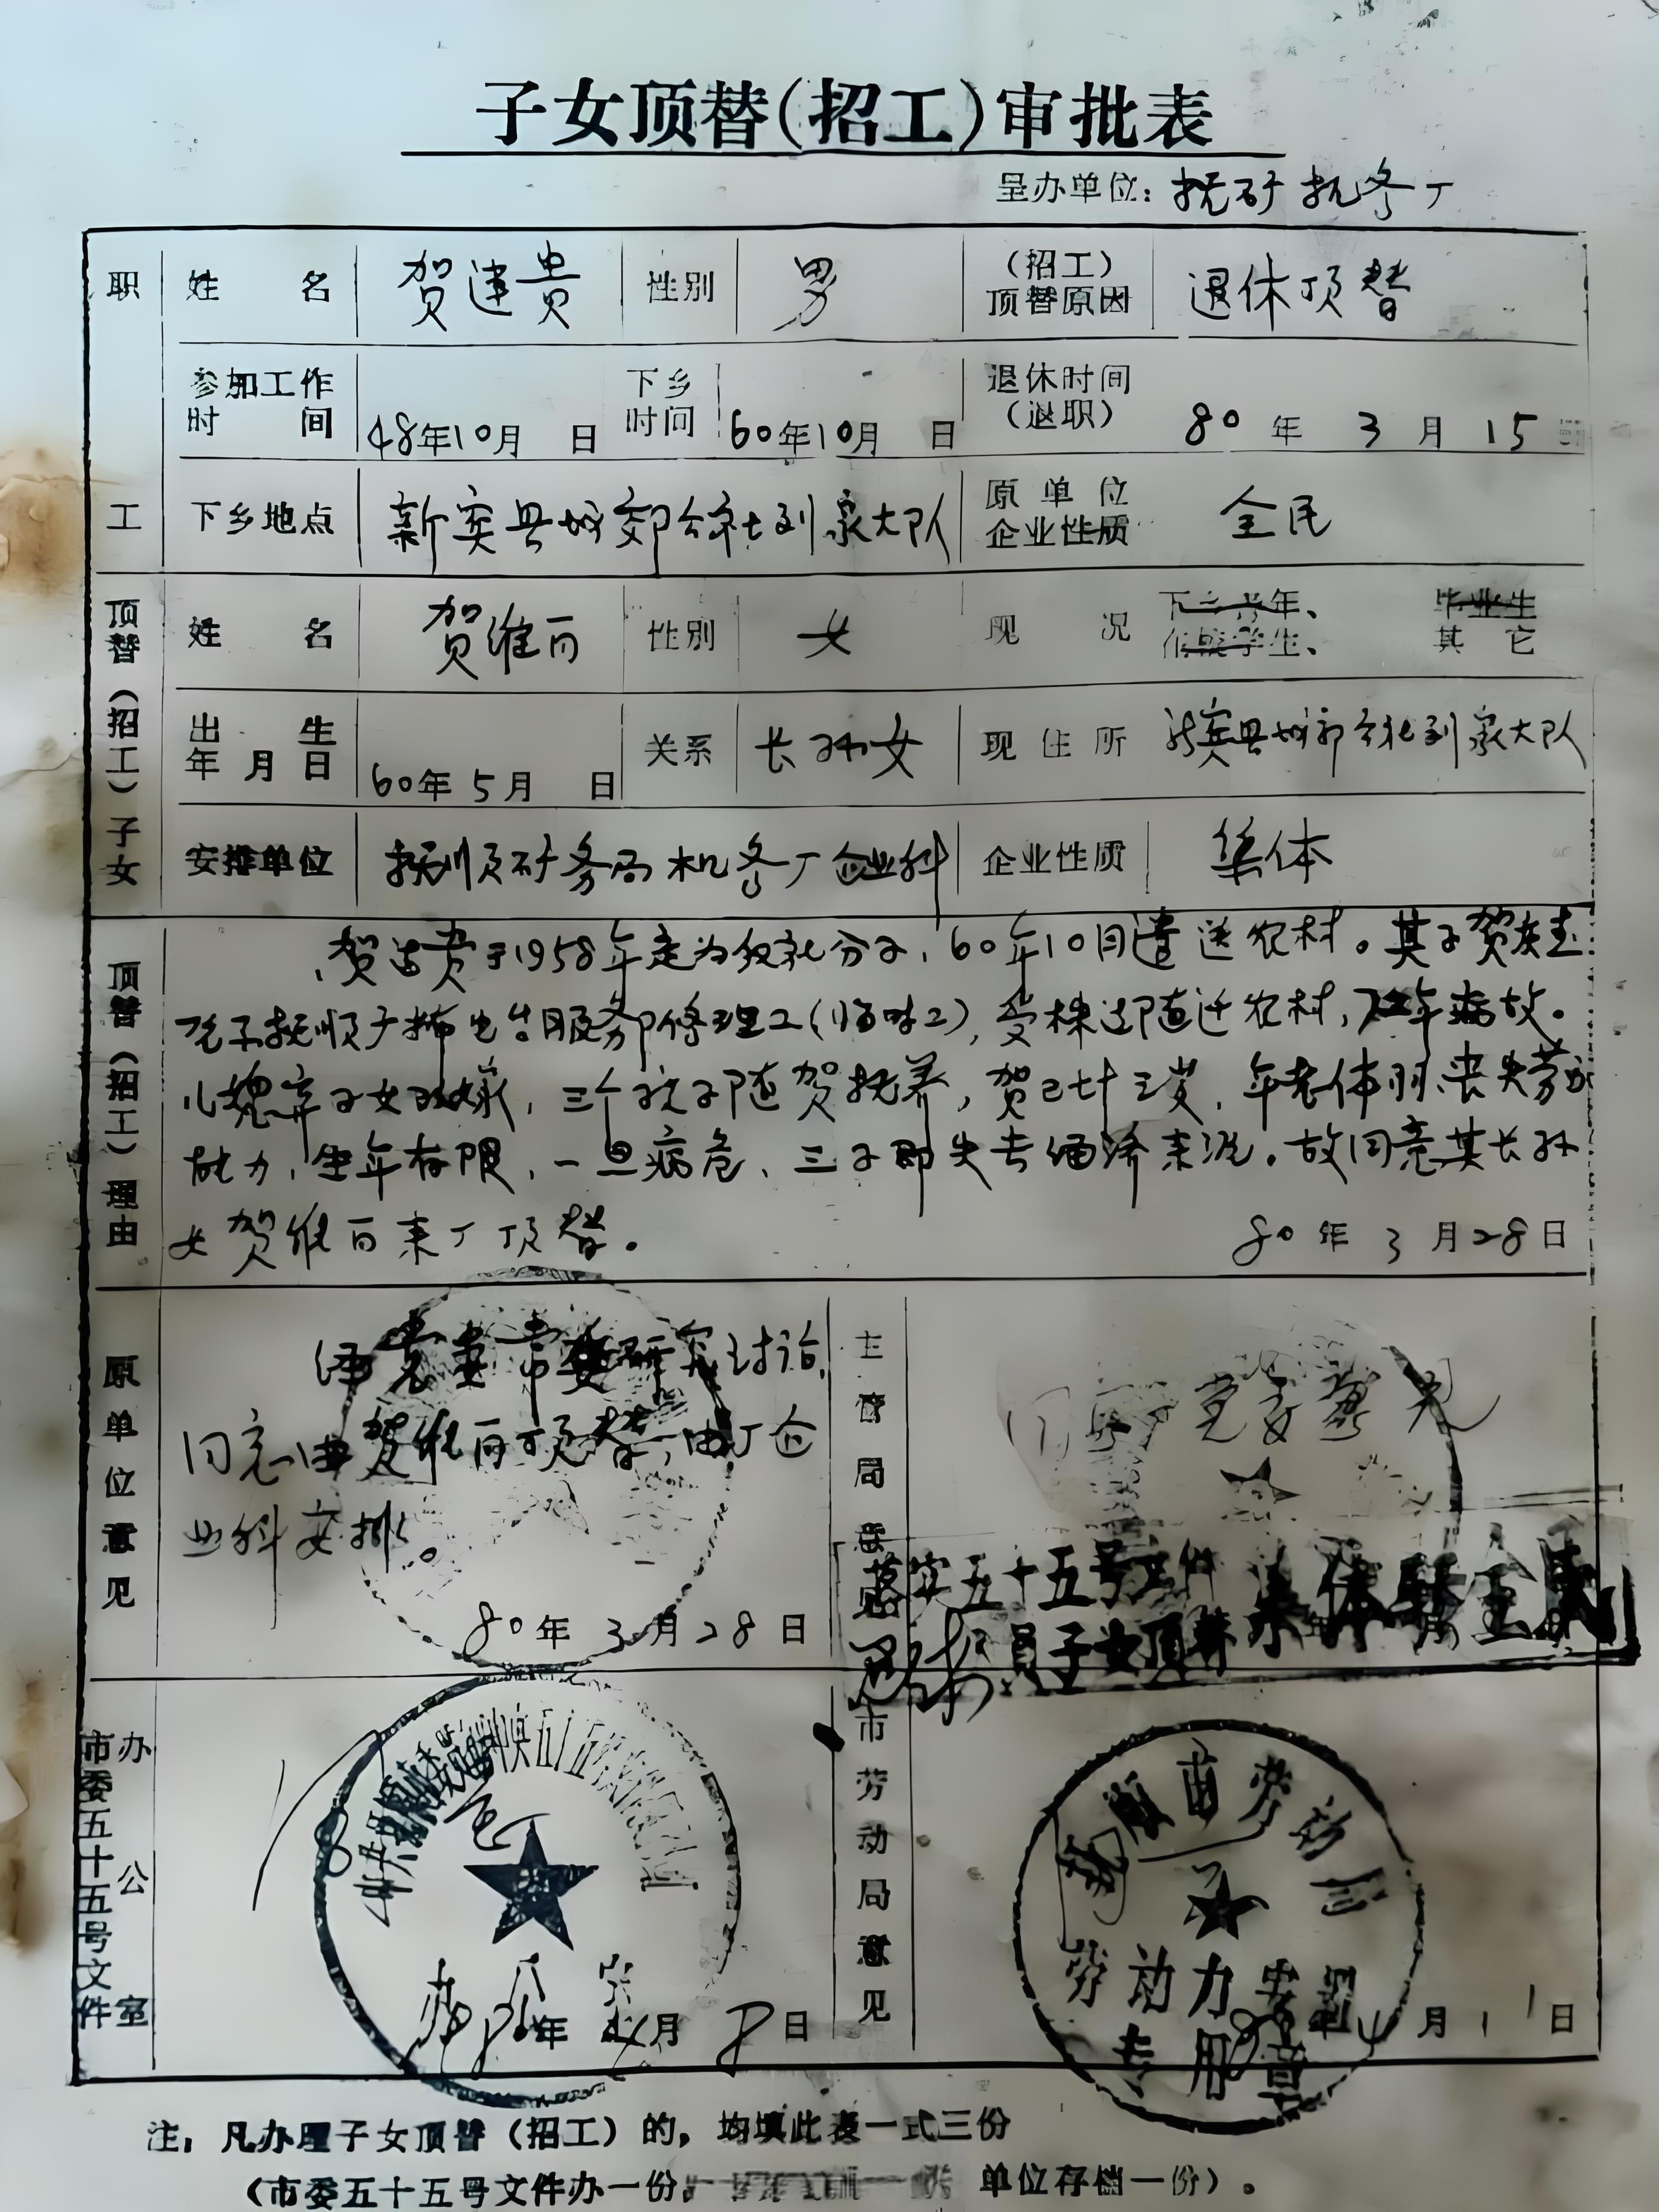 子女顶替(招工)审批表
呈办单位：抚矿机修厂
职工
姓名 贺连贵 性别 男 (招工)顶替原因 退休顶替
参加工作时间 48年10月 日 下乡时间 60年10月 日 退休时间(退职) 80年3月15
下乡地点 新宾县城郊公社刘家大队 原单位企业性质 全民
顶替(招工)子女
姓名 贺维 性别 女 现况 下乡青年、毕业生
学生、其它
出生年月日 60年5月 日 关系 长孙女 现住所 新宾县城郊公社刘家大队
安排单位 抚顺矿务局机修厂企业科 企业性质 集体
顶替(招工)理由
贺连贵于1958年定为 分子，60年10月遣送农村。其子贺
抚顺 电 服务部修理工(临时工)，受株连即随迁农村，年病故。
儿媳弃子女改嫁，三个孩子随贺抚养，贺已七十三岁，年老体弱丧失劳动
能力，生年有限，一旦病危，三子即失去经济来源。故同意其长孙
女贺维 来厂顶替。 80年3月28日
原单位意见
经党委常委研究讨论，
同意由贺维 顶替，由厂企
业科安排。
80年3月28日
主管局意见
党委意见
落实五十五号文件
员子女顶替
市委五十五号文件办公室
办公室
年4月8日
市劳动局意见
抚顺市劳动局
劳动力
专用章
年4月11日
注：凡办理子女顶替(招工)的，均填此表一式三份
(市委五十五号文件办一份， 一份 单位存档一份)。